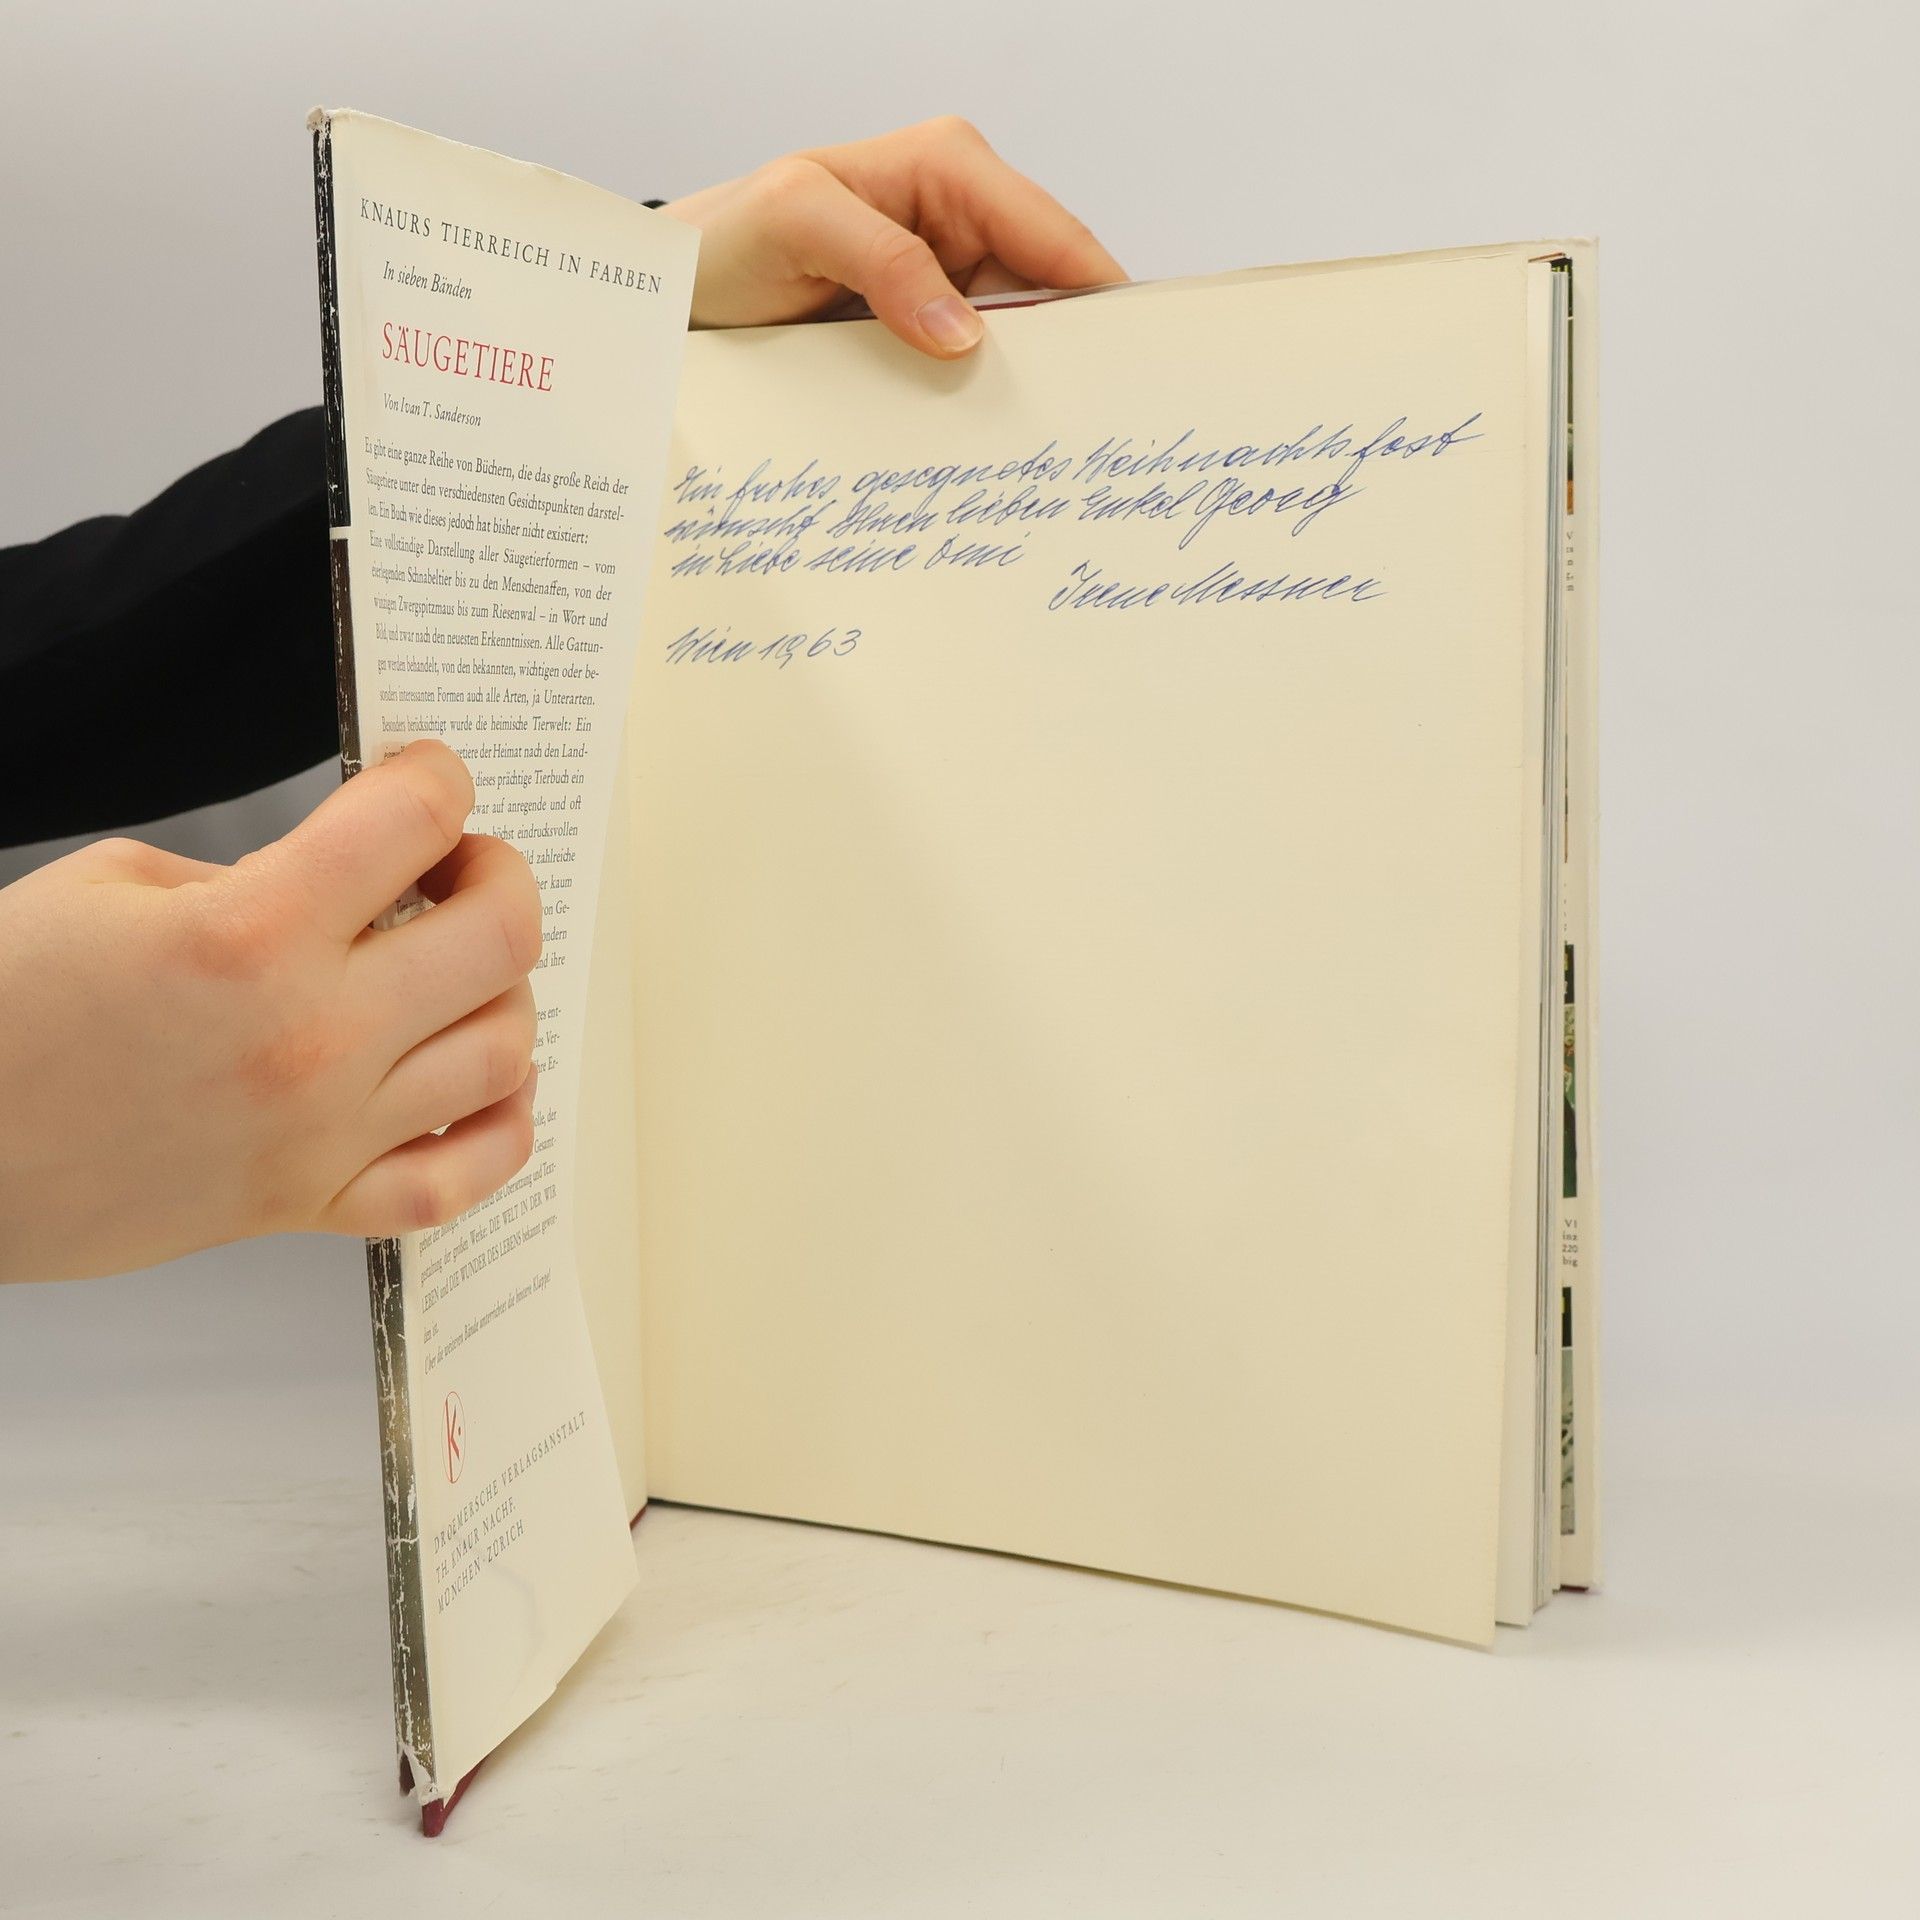 KNAURS TIERREICH IN FARBEN
In sieben Bänden
SÄUGETIERE
Von Ivan T. Sanderson
Es gibt eine ganze Reihe von Büchern, die das große Reich der
Säugetiere unter den verschiedensten Gesichtspunkten darstel-
len. Ein Buch wie dieses jedoch hat bisher nicht existiert:
Eine vollständige Darstellung aller Säugetierformen – vom
eierlegenden Schnabeltier bis zu den Menschenaffen, von der
winzigen Zwergspitzmaus bis zum Riesenwal – in Wort und
Bild, und zwar nach den neuesten Erkenntnissen. Alle Gattun-
gen werden behandelt, von den bekannten, wichtigen oder be-
sonders interessanten Formen auch alle Arten, ja Unterarten.
Besonders berücksichtigt wurde die heimische Tierwelt: Ein
getiere der Heimat nach den Land-
dieses prächtige Tierbuch ein
zwar auf anregende und oft
höchst eindrucksvollen
Bild zahlreiche
her kaum
von Ge-
ondern
und ihre
tes ent-
tes Ver-
ihre Er-
olle, der
Gesamt-
die Übersetzung und Text-
gestaltung der großen Werke: DIE WELT IN DER WIR
LEBEN und DIE WUNDER DES LEBENS bekannt gewor-
den ist.
Über die weiteren Bände unterrichtet die hintere Klappe!
K
DROEMERSCHE VERLAGSANSTALT
TH. KNAUR NACHF.
MÜNCHEN · ZÜRICH
Ein frohes gesegnetes Weihnachtsfest
wünscht Ihren lieben Enkel Georg
in Liebe seine Omi
Irene Messner
Wien 1963
VI
inz
220
big